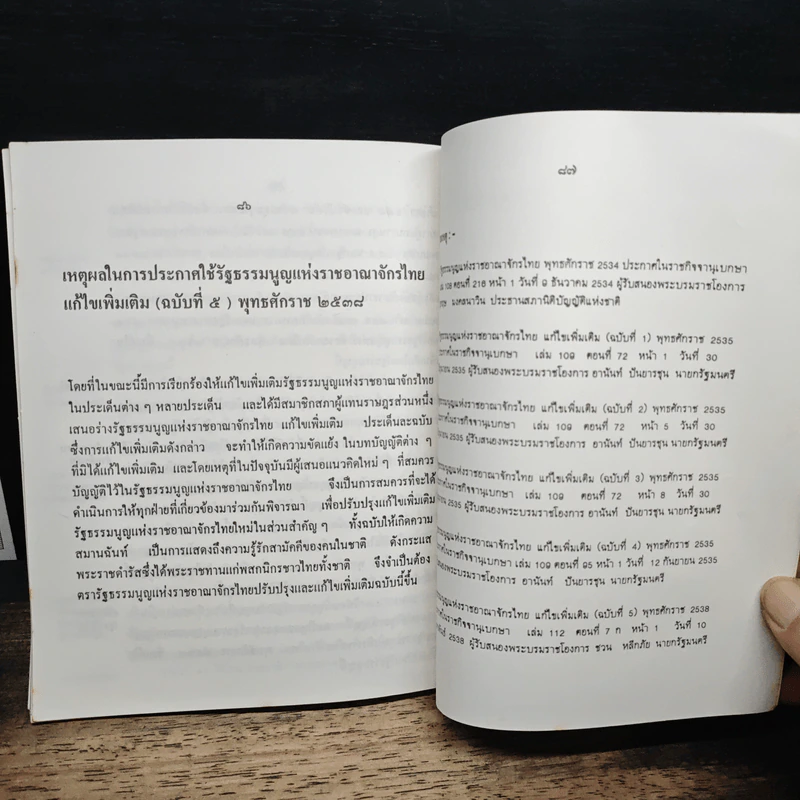 ๘๖
เหตุผลในการประกาศใช้รัฐธรรมนูญแห่งราชอาณาจักรไทย
แก้ไขเพิ่มเติม (ฉบับที่ ๕ ) พุทธศักราช ๒๕๓๘
โดยที่ในขณะนี้มีการเรียกร้องให้แก้ไขเพิ่มเติมรัฐธรรมนูญแห่งราชอาณาจักรไทย
ในประเด็นต่าง ๆ หลายประเด็น และได้มีสมาชิกสภาผู้แทนราษฎรส่วนหนึ่ง
เสนอร่างรัฐธรรมนูญแห่งราชอาณาจักรไทย แก้ไขเพิ่มเติม ประเด็นละฉบับ
ซึ่งการแก้ไขเพิ่มเติมดังกล่าว จะทำให้เกิดความขัดแย้ง ในบทบัญญัติต่าง ๆ
ที่มิได้แก้ไขเพิ่มเติม และโดยเหตุที่ในปัจจุบันมีผู้เสนอแนวคิดใหม่ ๆ ที่สมควร
บัญญัติไว้ในรัฐธรรมนูญแห่งราชอาณาจักรไทย จึงเป็นการสมควรที่จะได้
ดำเนินการให้ทุกฝ่ายที่เกี่ยวข้องมาร่วมกันพิจารณา เพื่อปรับปรุงแก้ไขเพิ่มเติม
รัฐธรรมนูญแห่งราชอาณาจักรไทยใหม่ในส่วนสำคัญ ๆ ทั้งฉบับให้เกิดความ
สมานฉันท์ เป็นการแสดงถึงความรู้รักสามัคคีของคนในชาติ ดังกระแส
พระราชดำรัสซึ่งได้พระราชทานแก่พสกนิกรชาวไทยทั้งชาติ จึงจำเป็นต้อง
ตรารัฐธรรมนูญแห่งราชอาณาจักรไทยปรับปรุงและแก้ไขเพิ่มเติมฉบับนี้ขึ้น
๘๗
แห่งราชอาณาจักรไทย พุทธศักราช 2534 ประกาศในราชกิจจานุเบกษา
108 ตอนที่ 216 หน้า 1 วันที่ 9 ธันวาคม 2534 ผู้รับสนองพระบรมราชโองการ
มงคลนาวิน ประธานสภานิติบัญญัติแห่งชาติ
แห่งราชอาณาจักรไทย แก้ไขเพิ่มเติม (ฉบับที่ 1) พุทธศักราช 2535
ราชกิจจานุเบกษา เล่ม 109 ตอนที่ 72 หน้า 1 วันที่ 30
2535 ผู้รับสนองพระบรมราชโองการ อานันท์ ปันยารชุน นายกรัฐมนตรี
แห่งราชอาณาจักรไทย แก้ไขเพิ่มเติม (ฉบับที่ 2) พุทธศักราช 2535
ราชกิจจานุเบกษา เล่ม 109 ตอนที่ 72 หน้า 5 วันที่ 30
2535 ผู้รับสนองพระบรมราชโองการ อานันท์ ปันยารชุน นายกรัฐมนตรี
แห่งราชอาณาจักรไทย แก้ไขเพิ่มเติม (ฉบับที่ 3) พุทธศักราช 2535
ราชกิจจานุเบกษา เล่ม 109 ตอนที่ 72 หน้า 8 วันที่ 30
2535 ผู้รับสนองพระบรมราชโองการ อานันท์ ปันยารชุน นายกรัฐมนตรี
แห่งราชอาณาจักรไทย แก้ไขเพิ่มเติม (ฉบับที่ 4) พุทธศักราช 2535
ราชกิจจานุเบกษา เล่ม 109 ตอนที่ 95 หน้า 1 วันที่ 12 กันยายน 2535
พระบรมราชโองการ อานันท์ ปันยารชุน นายกรัฐมนตรี
แห่งราชอาณาจักรไทย แก้ไขเพิ่มเติม (ฉบับที่ 5) พุทธศักราช 2538
ในราชกิจจานุเบกษา เล่ม 112 ตอนที่ 7 ก หน้า 1 วันที่ 10
2538 ผู้รับสนองพระบรมราชโองการ ชวน หลีกภัย นายกรัฐมนตรี